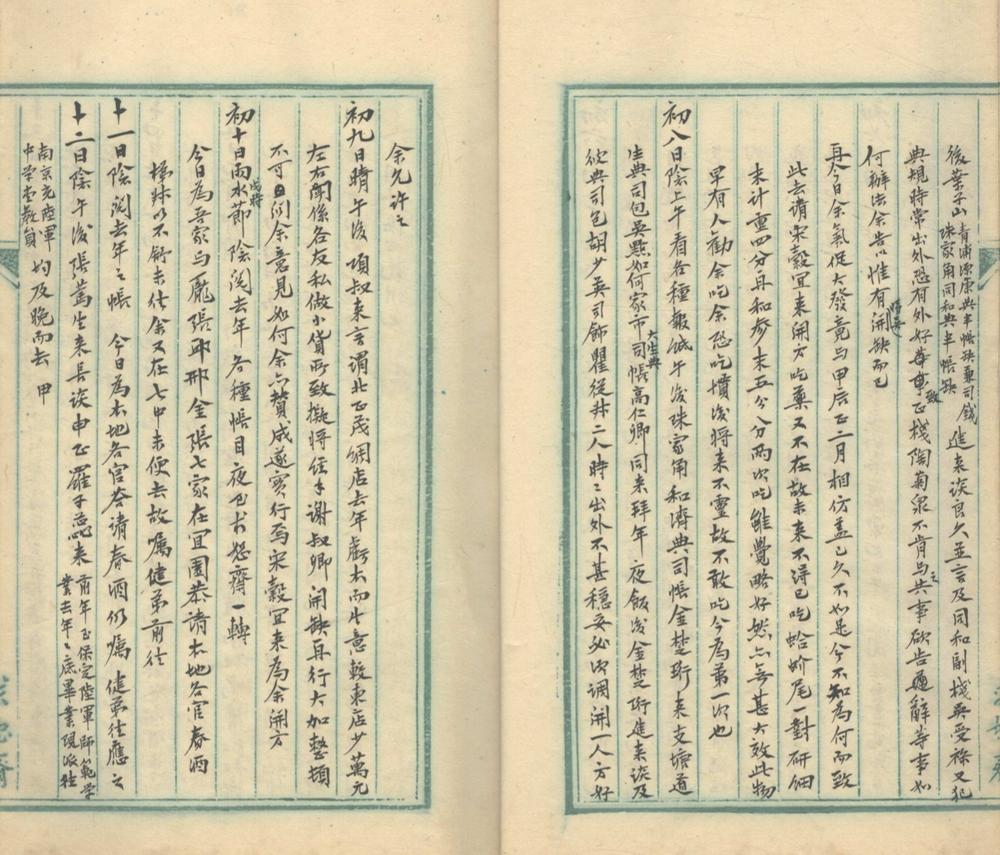 後葉子山青浦源康典半帳缺兼司錢
珠家角同和典半帳缺
進來談良久並言及同和副棧吳受祿又犯
典規時常出外恐有外好等事致正棧陶菊泉不肯与之共事欲告遁辭等事如
何辦法余告以惟有開缺而已
再今日余氣促大發竟与甲辰正二月相仿蓋已久不如是今不知為何而致
此去請宋穀宜來開方吃藥又不在故未來不得已吃蛤蚧尾一對研細
末計重四分再和參末五分八分兩次吃雖覺略好然亦無甚大效此物
早有人勸余吃余恐吃慣後將來不靈故不敢吃今為第一次也
初八日陰上午看各種報紙午後珠家角和濟典司帳金楚珩來支塘道
生典司包吳點如何家市大生典司帳高仁卿同來拜年夜飯後金楚珩進來談及
彼典司包胡少英司飾瞿從井二人時時出外不甚穩妥必須調開一人方好
余允許之
初九日晴午後項叔來言謂北正茂綢店去年虧本而生意較東店少萬元
左右關係各友私做小貨所致擬將經手謝叔卿開缺再行大加整頓
不可因問余意見如何余亦贊成遂實行焉宋穀宜來為余開方
初十日雨水節戌時陰閱去年各種帳目夜包書怒齋一轉
今日為吾家与龐張邵邢金張七家在宜園恭請本地各官春酒
梯妹以不舒未往余又在七中未便去故囑健弟前往
十一日陰閱去年之帳 今日為本地各官荅請春酒仍囑健弟往應之
十二日陰午後張蔦生來長談申正羅子蕊來前年至保定陸軍師範學
業去年之底畢業現派往
南京充陸軍
中學堂教員
均及晚而去 甲